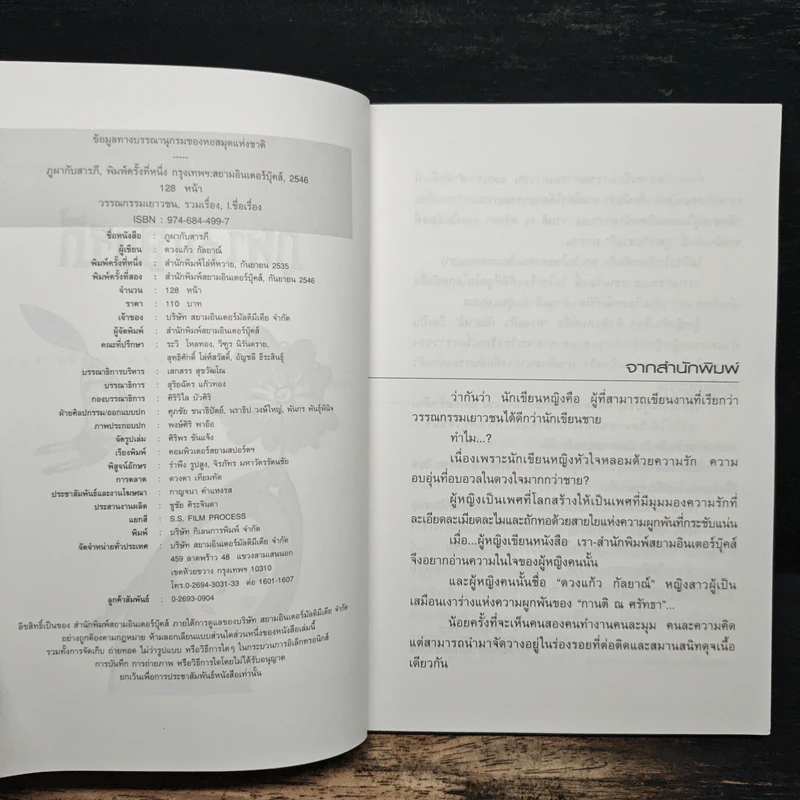 ข้อมูลทางบรรณานุกรมของหอสมุดแห่งชาติ
-----
ภูผากับสารภี, พิมพ์ครั้งที่หนึ่ง กรุงเทพฯ:สยามอินเตอร์บุ๊คส์, 2546
128 หน้า
วรรณกรรมเยาวชน, รวมเรื่อง, I.ชื่อเรื่อง
ISBN : 974-684-499-7
ชื่อหนังสือ : ภูผากับสารภี
ผู้เขียน : ดวงแก้ว กัลยาณ์
พิมพ์ครั้งที่หนึ่ง : สำนักพิมพ์ไล่ห์หวาย, กันยายน 2535
พิมพ์ครั้งที่สอง : สำนักพิมพ์สยามอินเตอร์บุ๊คส์, กันยายน 2546
จำนวน : 128 หน้า
ราคา : 110 บาท
เจ้าของ : บริษัท สยามอินเตอร์มัลติมีเดีย จำกัด
ผู้จัดพิมพ์ : สำนักพิมพ์สยามอินเตอร์บุ๊คส์
คณะที่ปรึกษา : ระวิ โหลทอง, วิฑูร นิรันตราย,
สุทธิศักดิ์ โล่ห์สวัสดิ์, อัญชลี ธีระสินธุ์
บรรณาธิการบริหาร : เสกสรร สุขวัฒโณ
บรรณาธิการ : สุริยฉัตร แก้วทอง
กองบรรณาธิการ : ศิริวิไล บัวศิริ
ฝ่ายศิลปกรรม/ออกแบบปก : ศุภชัย ชนาธิปัตย์, นราธิป วงษ์ใหญ่, พันกร พันธุ์พินิจ
ภาพประกอบปก : พงษ์ศิริ พาอ้อ
จัดรูปเล่ม : ศิริพร ขันแจ้ง
เรียงพิมพ์ : คอมพิวเตอร์สยามสปอร์ตฯ
พิสูจน์อักษร : รำพึง รูปสูง, จิรภัทร มหาวัตรรัตนชัย
การตลาด : ดวงตา เทียมทัด
ประชาสัมพันธ์และงานโฆษณา : กาญจนา คำแหงรส
ประสานงานผลิต : ชูชัย ศิระจินดา
แยกสี : S.S. FILM PROCESS
พิมพ์ : บริษัท กิเลนการพิมพ์ จำกัด
จัดจำหน่ายทั่วประเทศ : บริษัท สยามอินเตอร์มัลติมีเดีย จำกัด
459 ลาดพร้าว 48 แขวงสามเสนนอก
เขตห้วยขวาง กรุงเทพฯ 10310
โทร.0-2694-3031-33 ต่อ 1601-1607
ลูกค้าสัมพันธ์ : 0-2693-0904
ลิขสิทธิ์เป็นของ สำนักพิมพ์สยามอินเตอร์บุ๊คส์ ภายใต้การดูแลของบริษัท สยามอินเตอร์มัลติมีเดีย จำกัด
อย่างถูกต้องตามกฎหมาย ห้ามลอกเลียนแบบส่วนใดส่วนหนึ่งของหนังสือเล่มนี้
รวมทั้งการจัดเก็บ ถ่ายทอด ไม่ว่ารูปแบบ หรือวิธีการใดๆ ในกระบวนการอิเล็กทรอนิกส์
การบันทึก การถ่ายภาพ หรือวิธีการใดโดยไม่ได้รับอนุญาต
ยกเว้นเพื่อการประชาสัมพันธ์หนังสือเท่านั้น
จากสำนักพิมพ์
ว่ากันว่า นักเขียนหญิงคือ ผู้ที่สามารถเขียนงานที่เรียกว่า
วรรณกรรมเยาวชนได้ดีกว่านักเขียนชาย
ทำไม...?
เนื่องเพราะนักเขียนหญิงหัวใจหลอมด้วยความรัก ความ
อบอุ่นที่อบอวลในดวงใจมากกว่าชาย?
ผู้หญิงเป็นเพศที่โลกสร้างให้เป็นเพศที่มีมุมมองความรักที่
ละเอียดละเมียดละไมและถักทอด้วยสายใยแห่งความผูกพันที่กระชับแน่น
เมื่อ...ผู้หญิงเขียนหนังสือ เรา-สำนักพิมพ์สยามอินเตอร์บุ๊คส์
จึงอยากอ่านความในใจของผู้หญิงคนนั้น
และผู้หญิงคนนั้นชื่อ "ดวงแก้ว กัลยาณ์" หญิงสาวผู้เป็น
เสมือนเงาร่างแห่งความผูกพันของ "กานติ ณ ศรัทธา"...
น้อยครั้งที่จะเห็นคนสองคนทำงานคนละมุม คนละความคิด
แต่สามารถนำมาจัดวางอยู่ในร่องรอยที่ต่อติดและสมานสนิทดุจเนื้อ
เดียวกัน